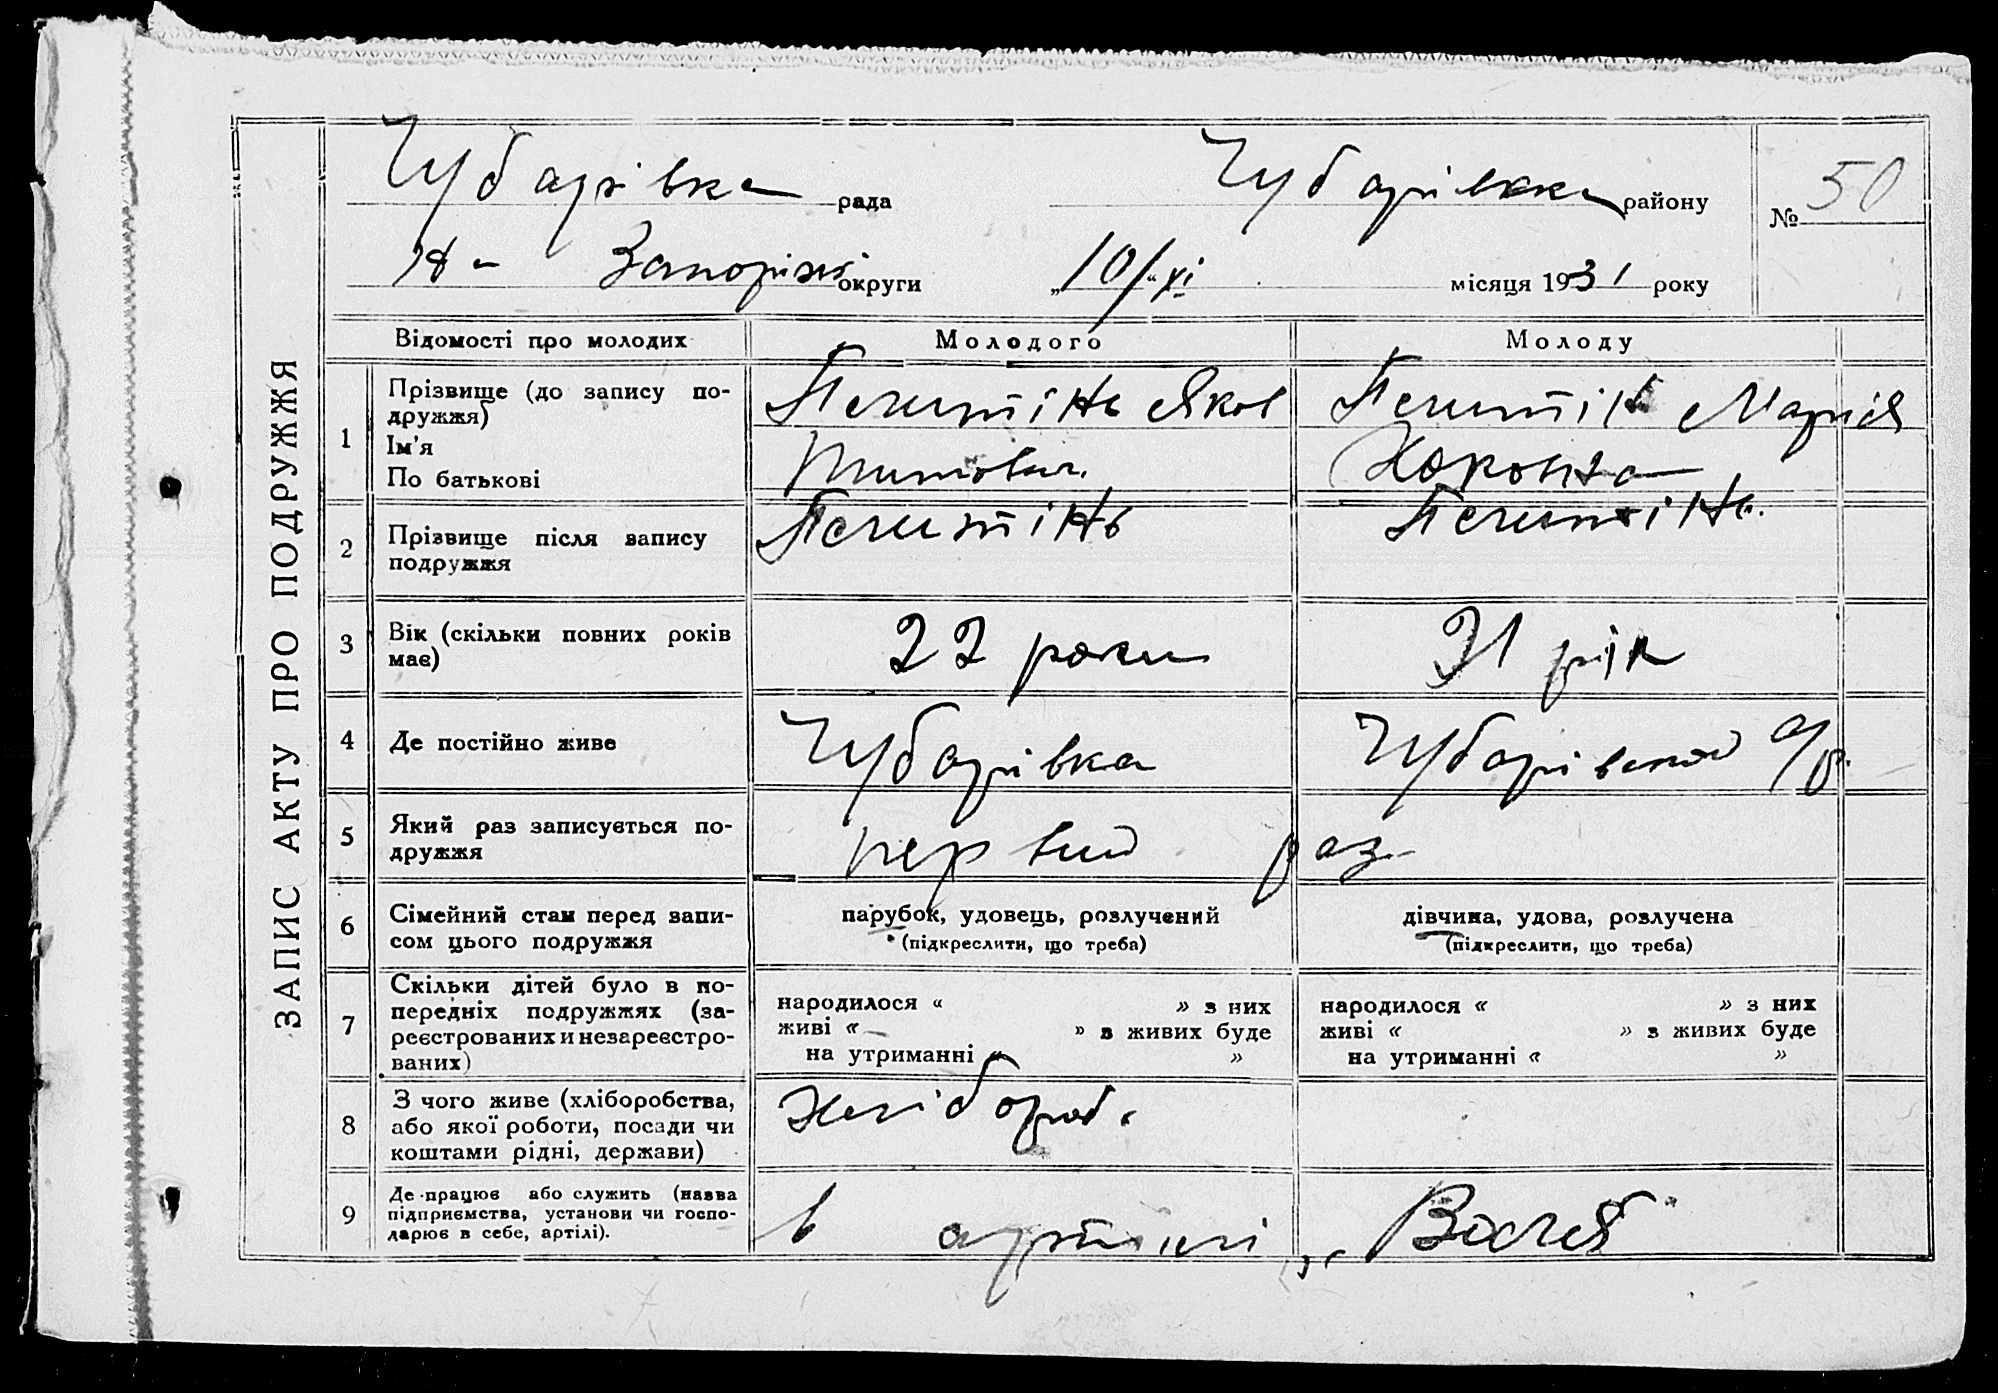 ЗАПИС АКТУ ПРО ПОДРУЖЖЯ
Чубарівка рада Чубарівка району № 50
Запоріжс округи „10/“ XI місяця 1931 року
Відомості про молодих Молодого Молоду
1 Прізвище (до запису по-
дружжя)
Ім'я
По батькові
Яков
Титович
Марія
2 Прізвище після запису
подружжя
3 Вік (скільки повних років
має)
22 роки
21 рік
4 Де постійно живе
Чубарівка
5 Який раз записується по-
дружжя
первий раз
6 Сімейний стан перед запи-
сом цього подружжя
парубок, удовець, розлучений
(підкреслити, що треба)
дівчина, удова, розлучена
(підкреслити, що треба)
7 Скільки дітей було в по-
передніх подружжях (за-
реєстрованих и незареєстро-
ваних)
народилося « » з них
живі « » з живих буде
на утриманні « »
народилося « » з них
живі « » з живих буде
на утриманні « »
8 З чого живе (хліборобства,
або якої роботи, посади чи
коштами рідні, держави)
хлібороб.
9 Де працює або служить (назва
підприємства, установи чи госпо-
дарює в себе, артілі).
в артілі